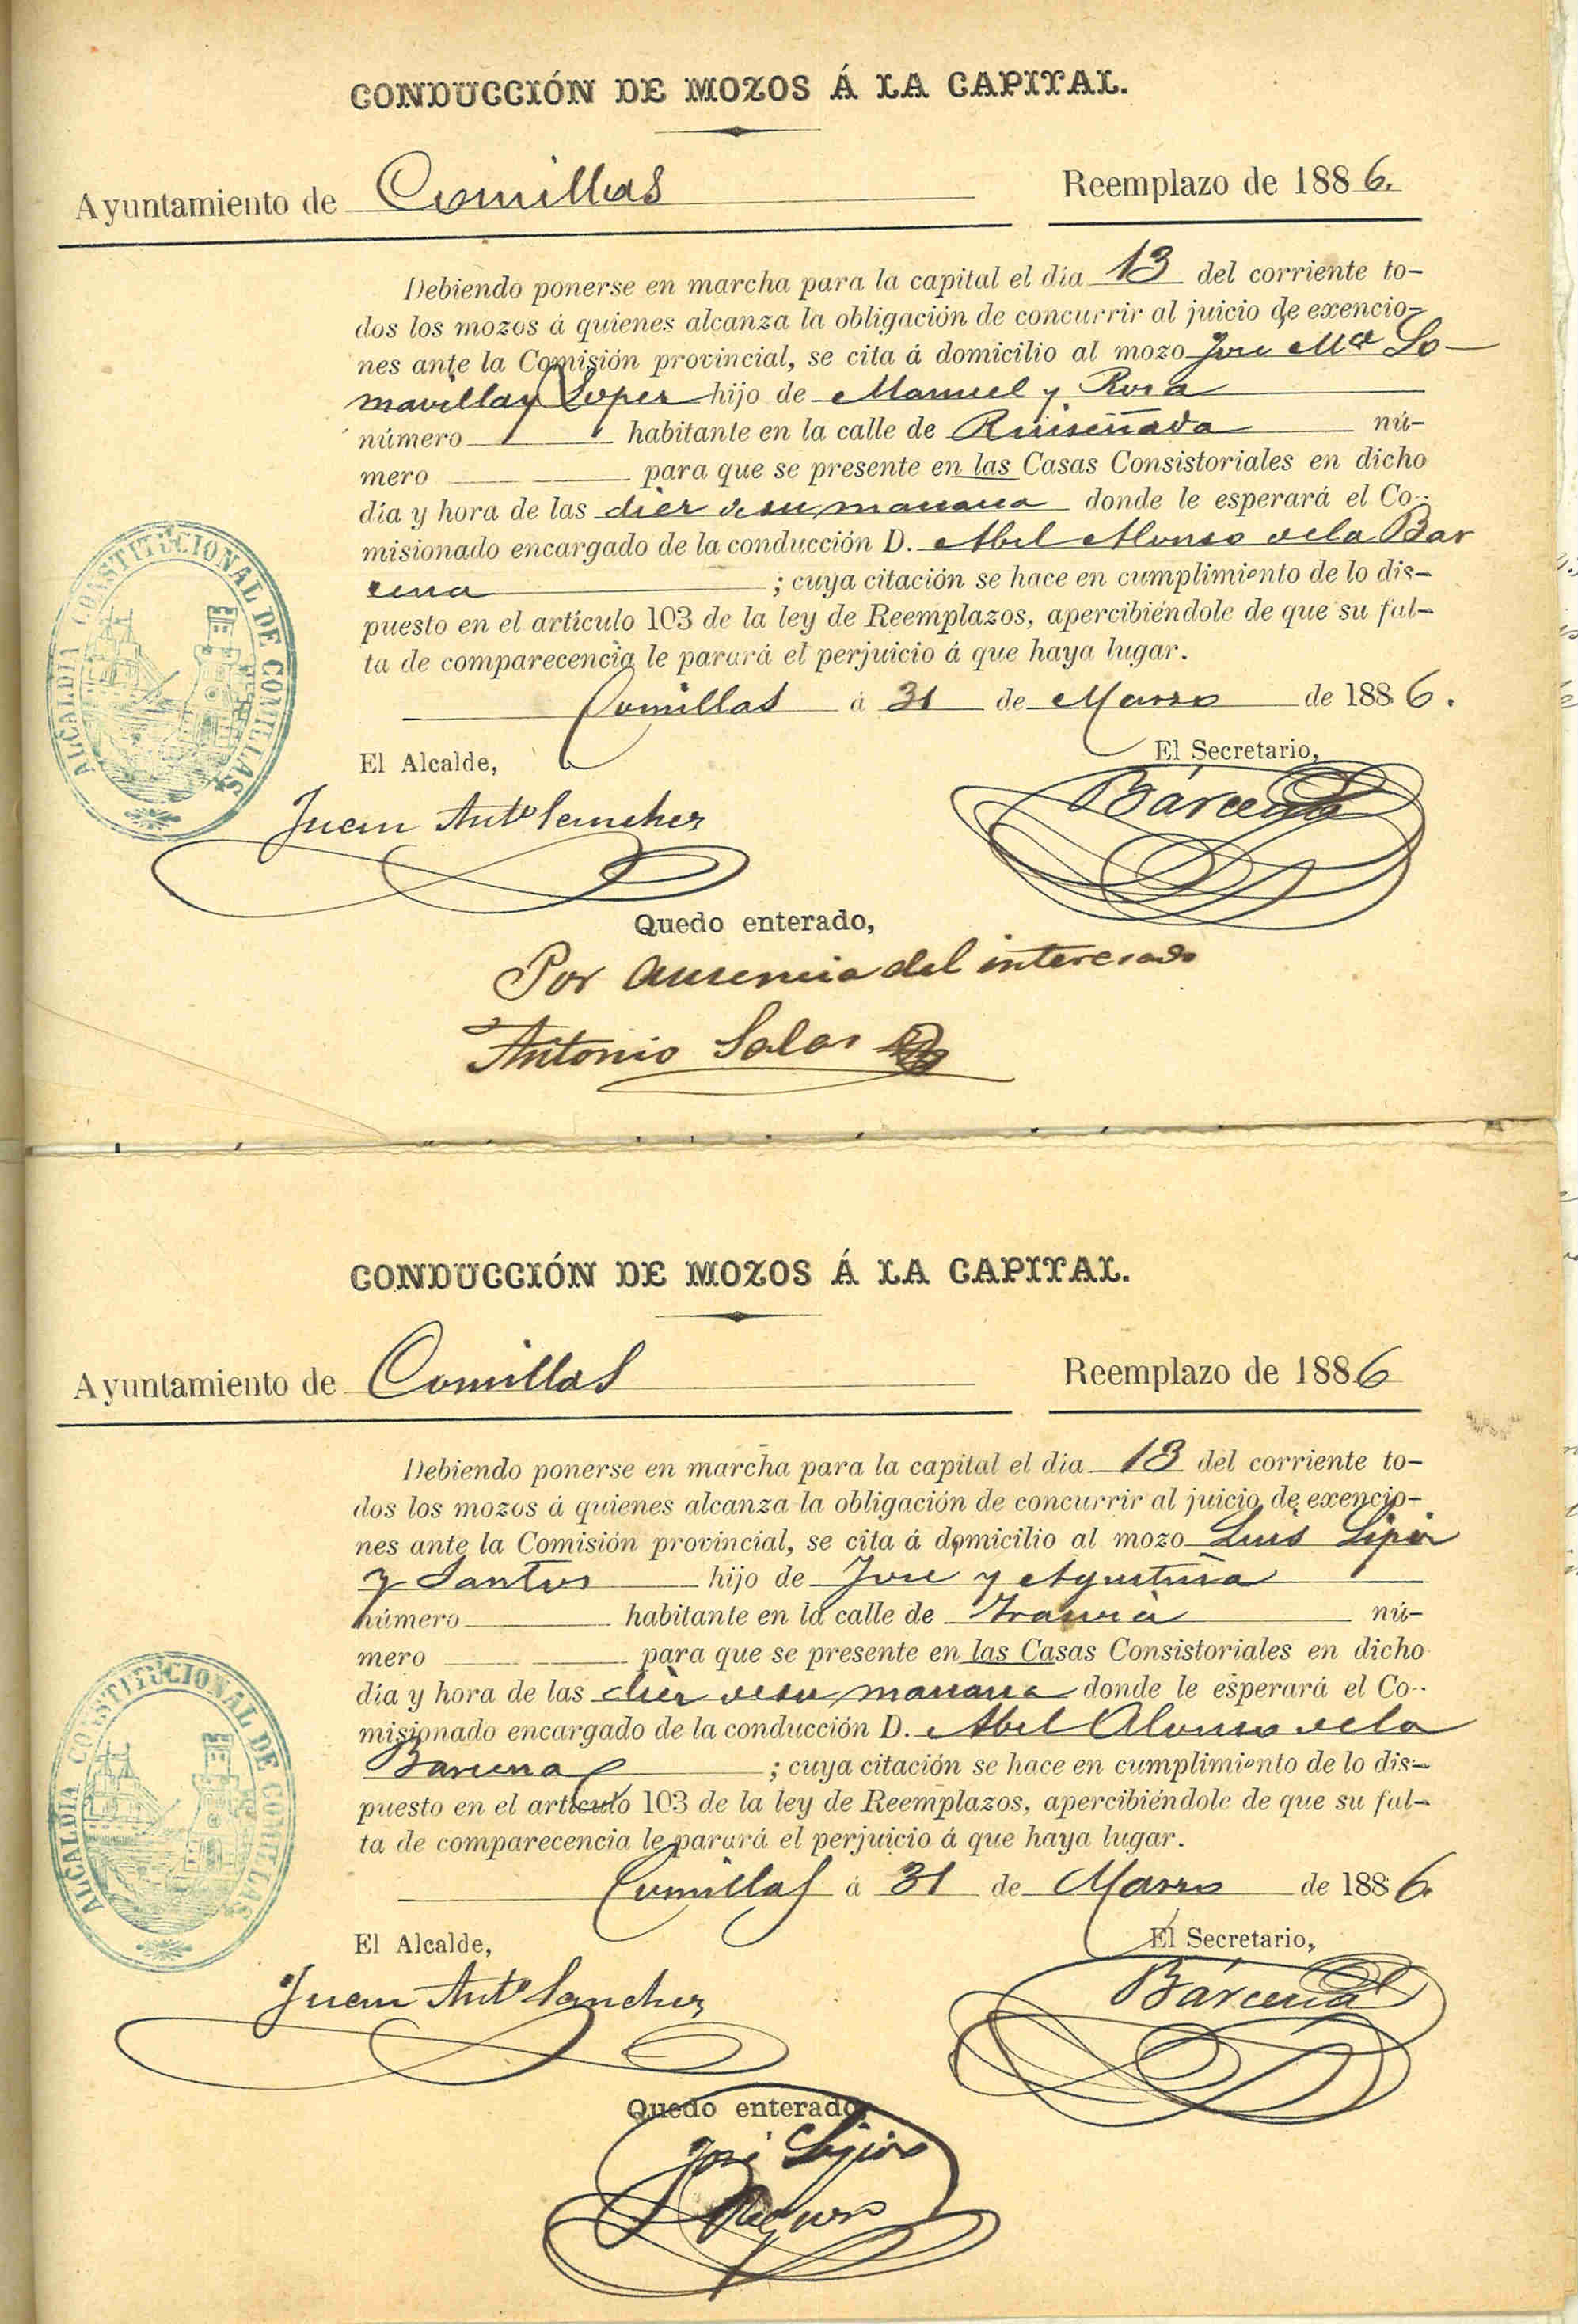 CONDUCCIÓN DE MOZOS Á LA CAPITAL.
Ayuntamiento de Comillas Reemplazo de 1886.
Debiendo ponerse en marcha para la capital el día 13 del corriente to-
dos los mozos á quienes alcanza la obligación de concurrir al juicio de exencio-
nes ante la Comisión provincial, se cita á domicilio al mozo Jose Mª So-
mavilla y Lopez hijo de Manuel y Rosa
número habitante en la calle de Ruiseñada nú-
mero para que se presente en las Casas Consistoriales en dicho
día y hora de las diez de su mañana donde le esperará el Co-
misionado encargado de la conducción D. Abel Alonso de la Bar
cena ; cuya citación se hace en cumplimiento de lo dis-
puesto en el artículo 103 de la ley de Reemplazos, apercibiéndole de que su fal-
ta de comparecencia le parará el perjuicio á que haya lugar.
Comillas á 31 de Marzo de 1886.
ALCALDIA CONSTITUCIONAL DE COMILLAS
El Alcalde, El Secretario,
Juan Antº Sanchez Bárcena
Quedo enterado,
Por ausencia del interesado
Antonio Salas
CONDUCCIÓN DE MOZOS Á LA CAPITAL.
Ayuntamiento de Comillas Reemplazo de 1886
Debiendo ponerse en marcha para la capital el día 13 del corriente to-
dos los mozos á quienes alcanza la obligación de concurrir al juicio de exencio-
nes ante la Comisión provincial, se cita á domicilio al mozo Luis
y Santos hijo de Jose y Agustina
número habitante en la calle de nú-
mero para que se presente en las Casas Consistoriales en dicho
día y hora de las diez de su mañana donde le esperará el Co-
misionado encargado de la conducción D. Abel Alonso de la
Barcena ; cuya citación se hace en cumplimiento de lo dis-
puesto en el artículo 103 de la ley de Reemplazos, apercibiéndole de que su fal-
ta de comparecencia le parará el perjuicio á que haya lugar.
Comillas á 31 de Marzo de 1886.
ALCALDIA CONSTITUCIONAL DE COMILLAS
El Alcalde, El Secretario,
Juan Antº Sanchez Bárcena
Quedo enterado,
José